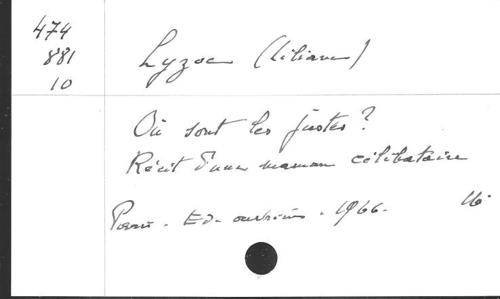 474
881
10
Lyzoc (Liliane)
Où sont les justes?
Récit d'une maman célibataire
Paris. Ed. ouvrières. 1966. 16°